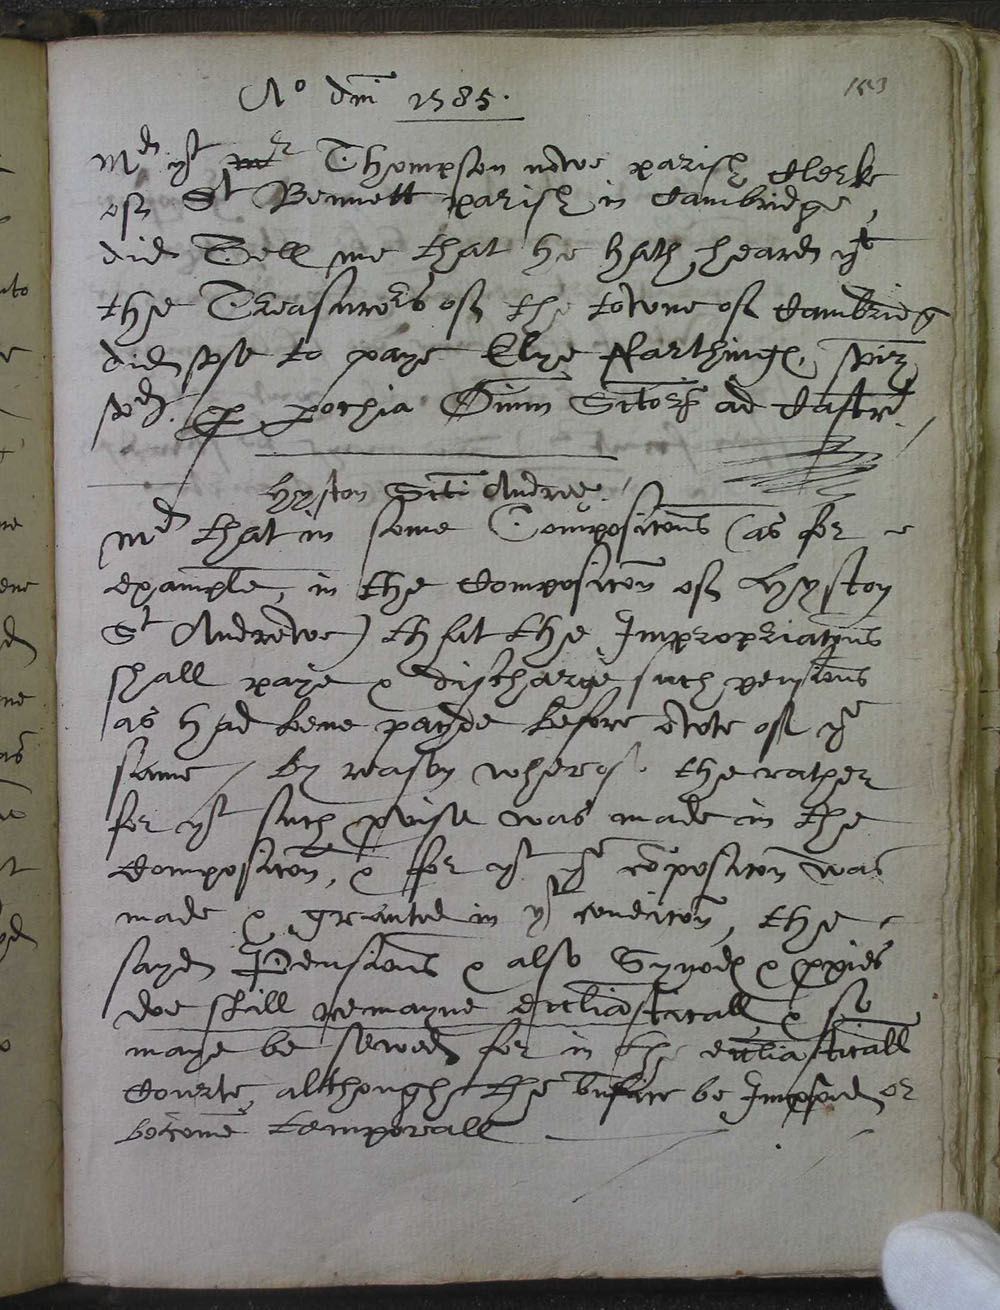 Ao dm 1585.
153
Md yt mr Thompson nowe parish Clerke
of St Bennett parish in Cambridge,
did Tell me that he hath heard yt
the Treasurers of the towne of Cambridg
did use to paye Elye ffarthinges,
pochia Omm Sctorum ad Castrū
Hyston Scti Andree.
Md that in some Compositons (as for
example, in the Compositon of Hyston
St Andrewe) that the Impropriatōns
shall paye & discharge such pensions
as had bene payde before owte of ye
same / By reason wherof. the rather
for yt such pvise was made in the
Compositon, & for yt ye cōpositon was
made & granted in yt conditon, the
sayd Pensions & also Synods & pxies
doe still remayne eccliasticall, & so
maye be sewed for in the eccliasticall
Courte, although the benfice be Impped or
become temporall